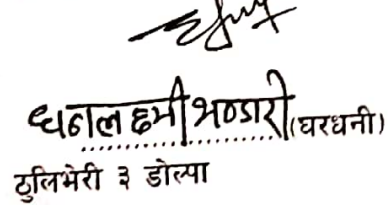 धनलक्ष्मी भण्डारी (घरधनी)
ठुलिभेरी ३ डोल्पा